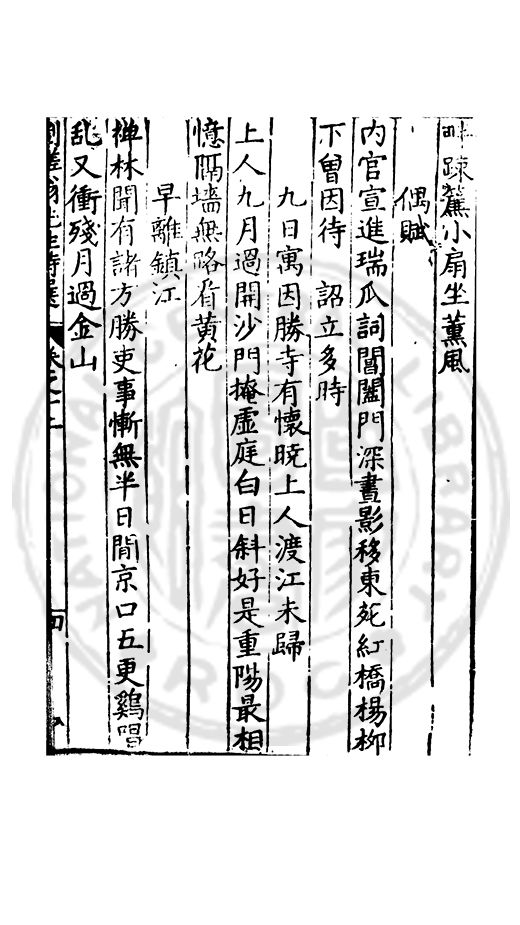 踈簾小扇坐薰風
偶賦
内官宣進瑞瓜詞閶闔門深晝影移東苑紅橋楊柳
下曾因待 詔立多時
九日寓因勝寺有懷暁上人渡江未歸
上人九月過開沙門掩虛庭白日斜好是重陽最相
憶隔墻無略看黄花
早離鎮江
禅林聞有諸方勝吏事慚無半日閒京口五更鷄唱
乱又衝殘月過金山
先生詩選 卷之二
四
NATIONAL CENTRAL LIBRARY
R.O.C.